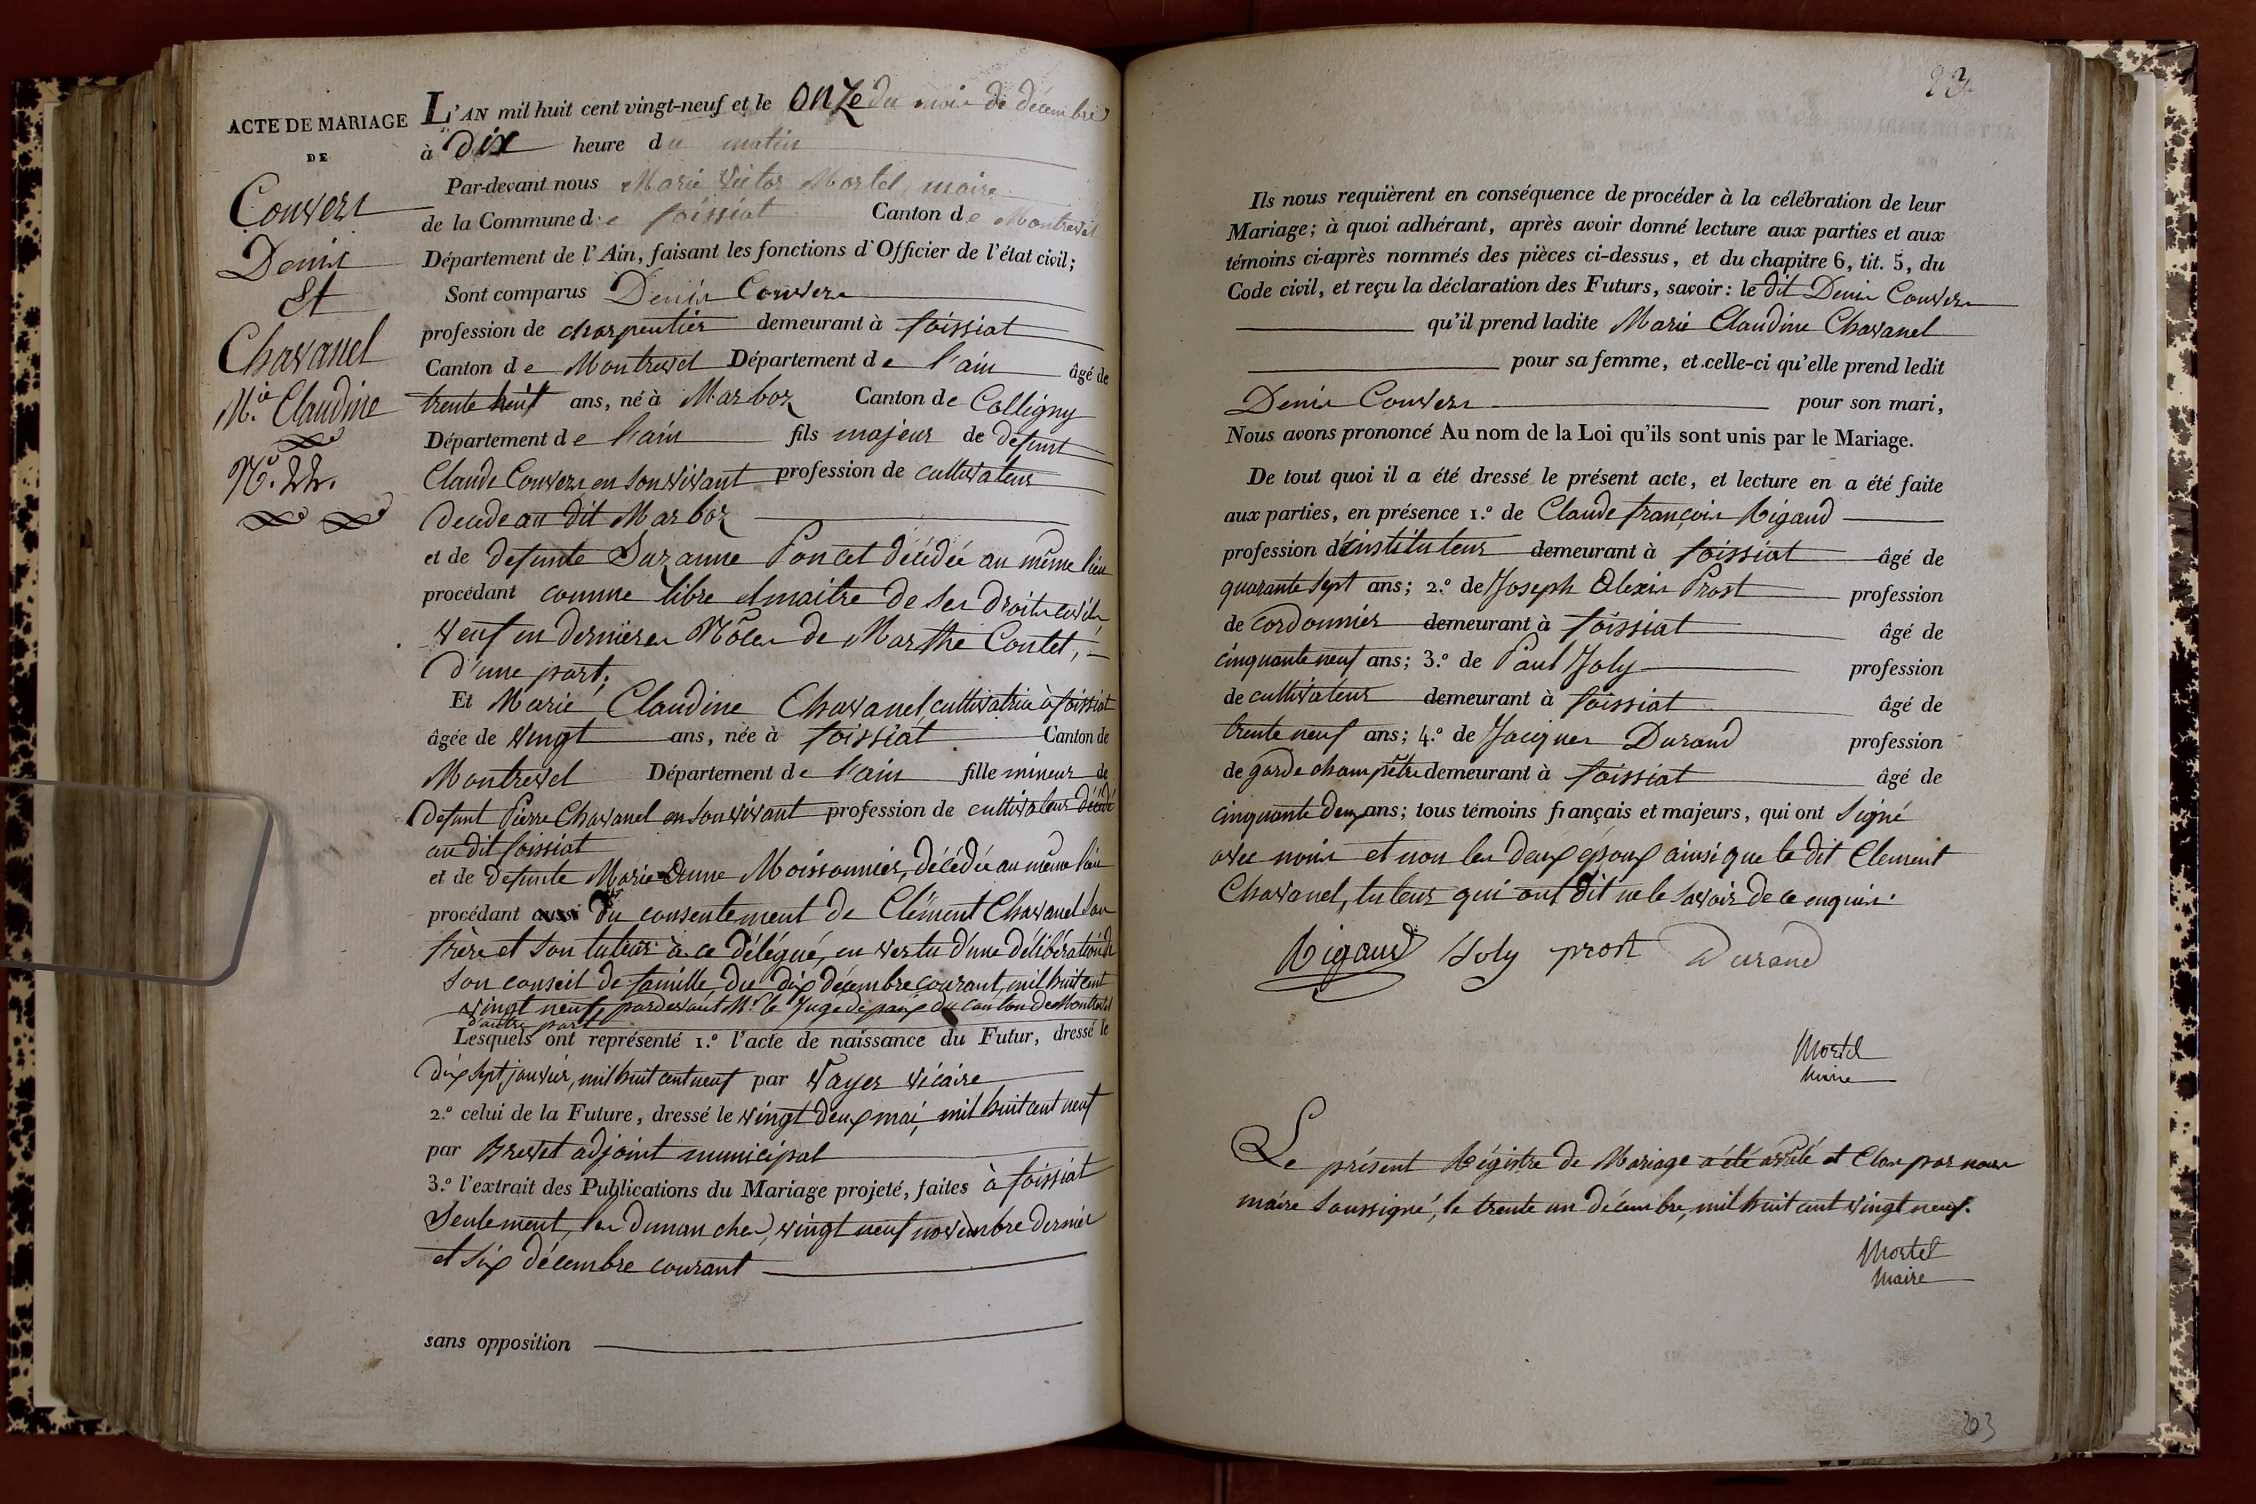 ACTE DE MARIAGE
DE
Convers
Denis
Et
Chavanel
M.ie Claudine
N.o 22.
L'AN mil huit cent vingt-neuf et le onze du mois de décembre
à dix heure du matin
Par-devant nous Marie Victor Mortel, maire
de la Commune de foissiat Canton de Montrevel
Département de l'Ain, faisant les fonctions d'Officier de l'état civil;
Sont comparus Denis Convers
profession de charpentier demeurant à foissiat
Canton de Montrevel Département de l'ain âgé de
trente neuf ans, né à Marboz Canton de Colligny
Département de l'ain fils majeur de defunt
Claude Convers en son vivant profession de cultivateur
decede au dit Marboz
et de defunte Suzanne Poncet décédée au même lieu
procédant comme libre et maitre de ses droits civils,
veuf en dernieres Nôces de Marthe Contet,
d'une part;
Et Marie Claudine Chavanel, cultivatrice à foissiat
âgée de vingt ans, née à foissiat Canton de
Montrevel Département de l'ain fille mineur de
defunt Pierre Chavanel en son vivant profession de cultivateur décédé
au dit foissiat
et de defunte Marie Anne Moissonnier, décédée au même lieu
procédant aussi du consentement de Clément Chavanel son
frère et son tuteur à ce délégué, en vertu d'une délibération de
son conseil de famille du dix décembre courant, mil huit cent
vingt neuf, pardevant Mr le Juge de paix du canton de Montrevel
d'autre part
Lesquels ont représenté 1.o l'acte de naissance du Futur, dressé le
dix sept janvier, mil huit cent neuf par Vayer vicaire
2.o celui de la Future, dressé le vingt deux mai, mil huit cent neuf
par Brevet adjoint municipal
3.o l'extrait des Publications du Mariage projeté, faites à foissiat
Seulement, les dimanches, vingt neuf novembre dernier
et six décembre courant
sans opposition
23
Ils nous requièrent en conséquence de procéder à la célébration de leur
Mariage; à quoi adhérant, après avoir donné lecture aux parties et aux
témoins ci-après nommés des pièces ci-dessus, et du chapitre 6, tit. 5, du
Code civil, et reçu la déclaration des Futurs, savoir: le dit Denis Convers
qu'il prend ladite Marie Claudine Chavanel
pour sa femme, et celle-ci qu'elle prend ledit
Denis Convers pour son mari,
Nous avons prononcé Au nom de la Loi qu'ils sont unis par le Mariage.
De tout quoi il a été dressé le présent acte, et lecture en a été faite
aux parties, en présence 1.o de Claude françois Rigaud
profession d'instituteur demeurant à foissiat âgé de
quarante sept ans; 2.o de Joseph Alexis Prost profession
de cordonnier demeurant à foissiat âgé de
cinquante neuf ans; 3.o de Paul Joly profession
de cultivateur demeurant à foissiat âgé de
trente neuf ans; 4.o de Jacques Durand profession
de garde champêtre demeurant à foissiat âgé de
cinquante deux ans; tous témoins français et majeurs, qui ont signé
avec nous et non les deux époux ainsi que le dit Clement
Chavanel, tuteur qui ont dit ne le savoir de ce enquis.
Rigaud Joly prost Durand
Mortel
Maire
Le présent Régistre de Mariage a été arrêté et clos par nous
maire soussigné, le trente un décembre, mil huit cent vingt neuf.
Mortel
Maire
203